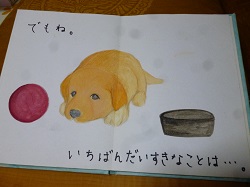 でもね。
いちばんだいすきなことは…